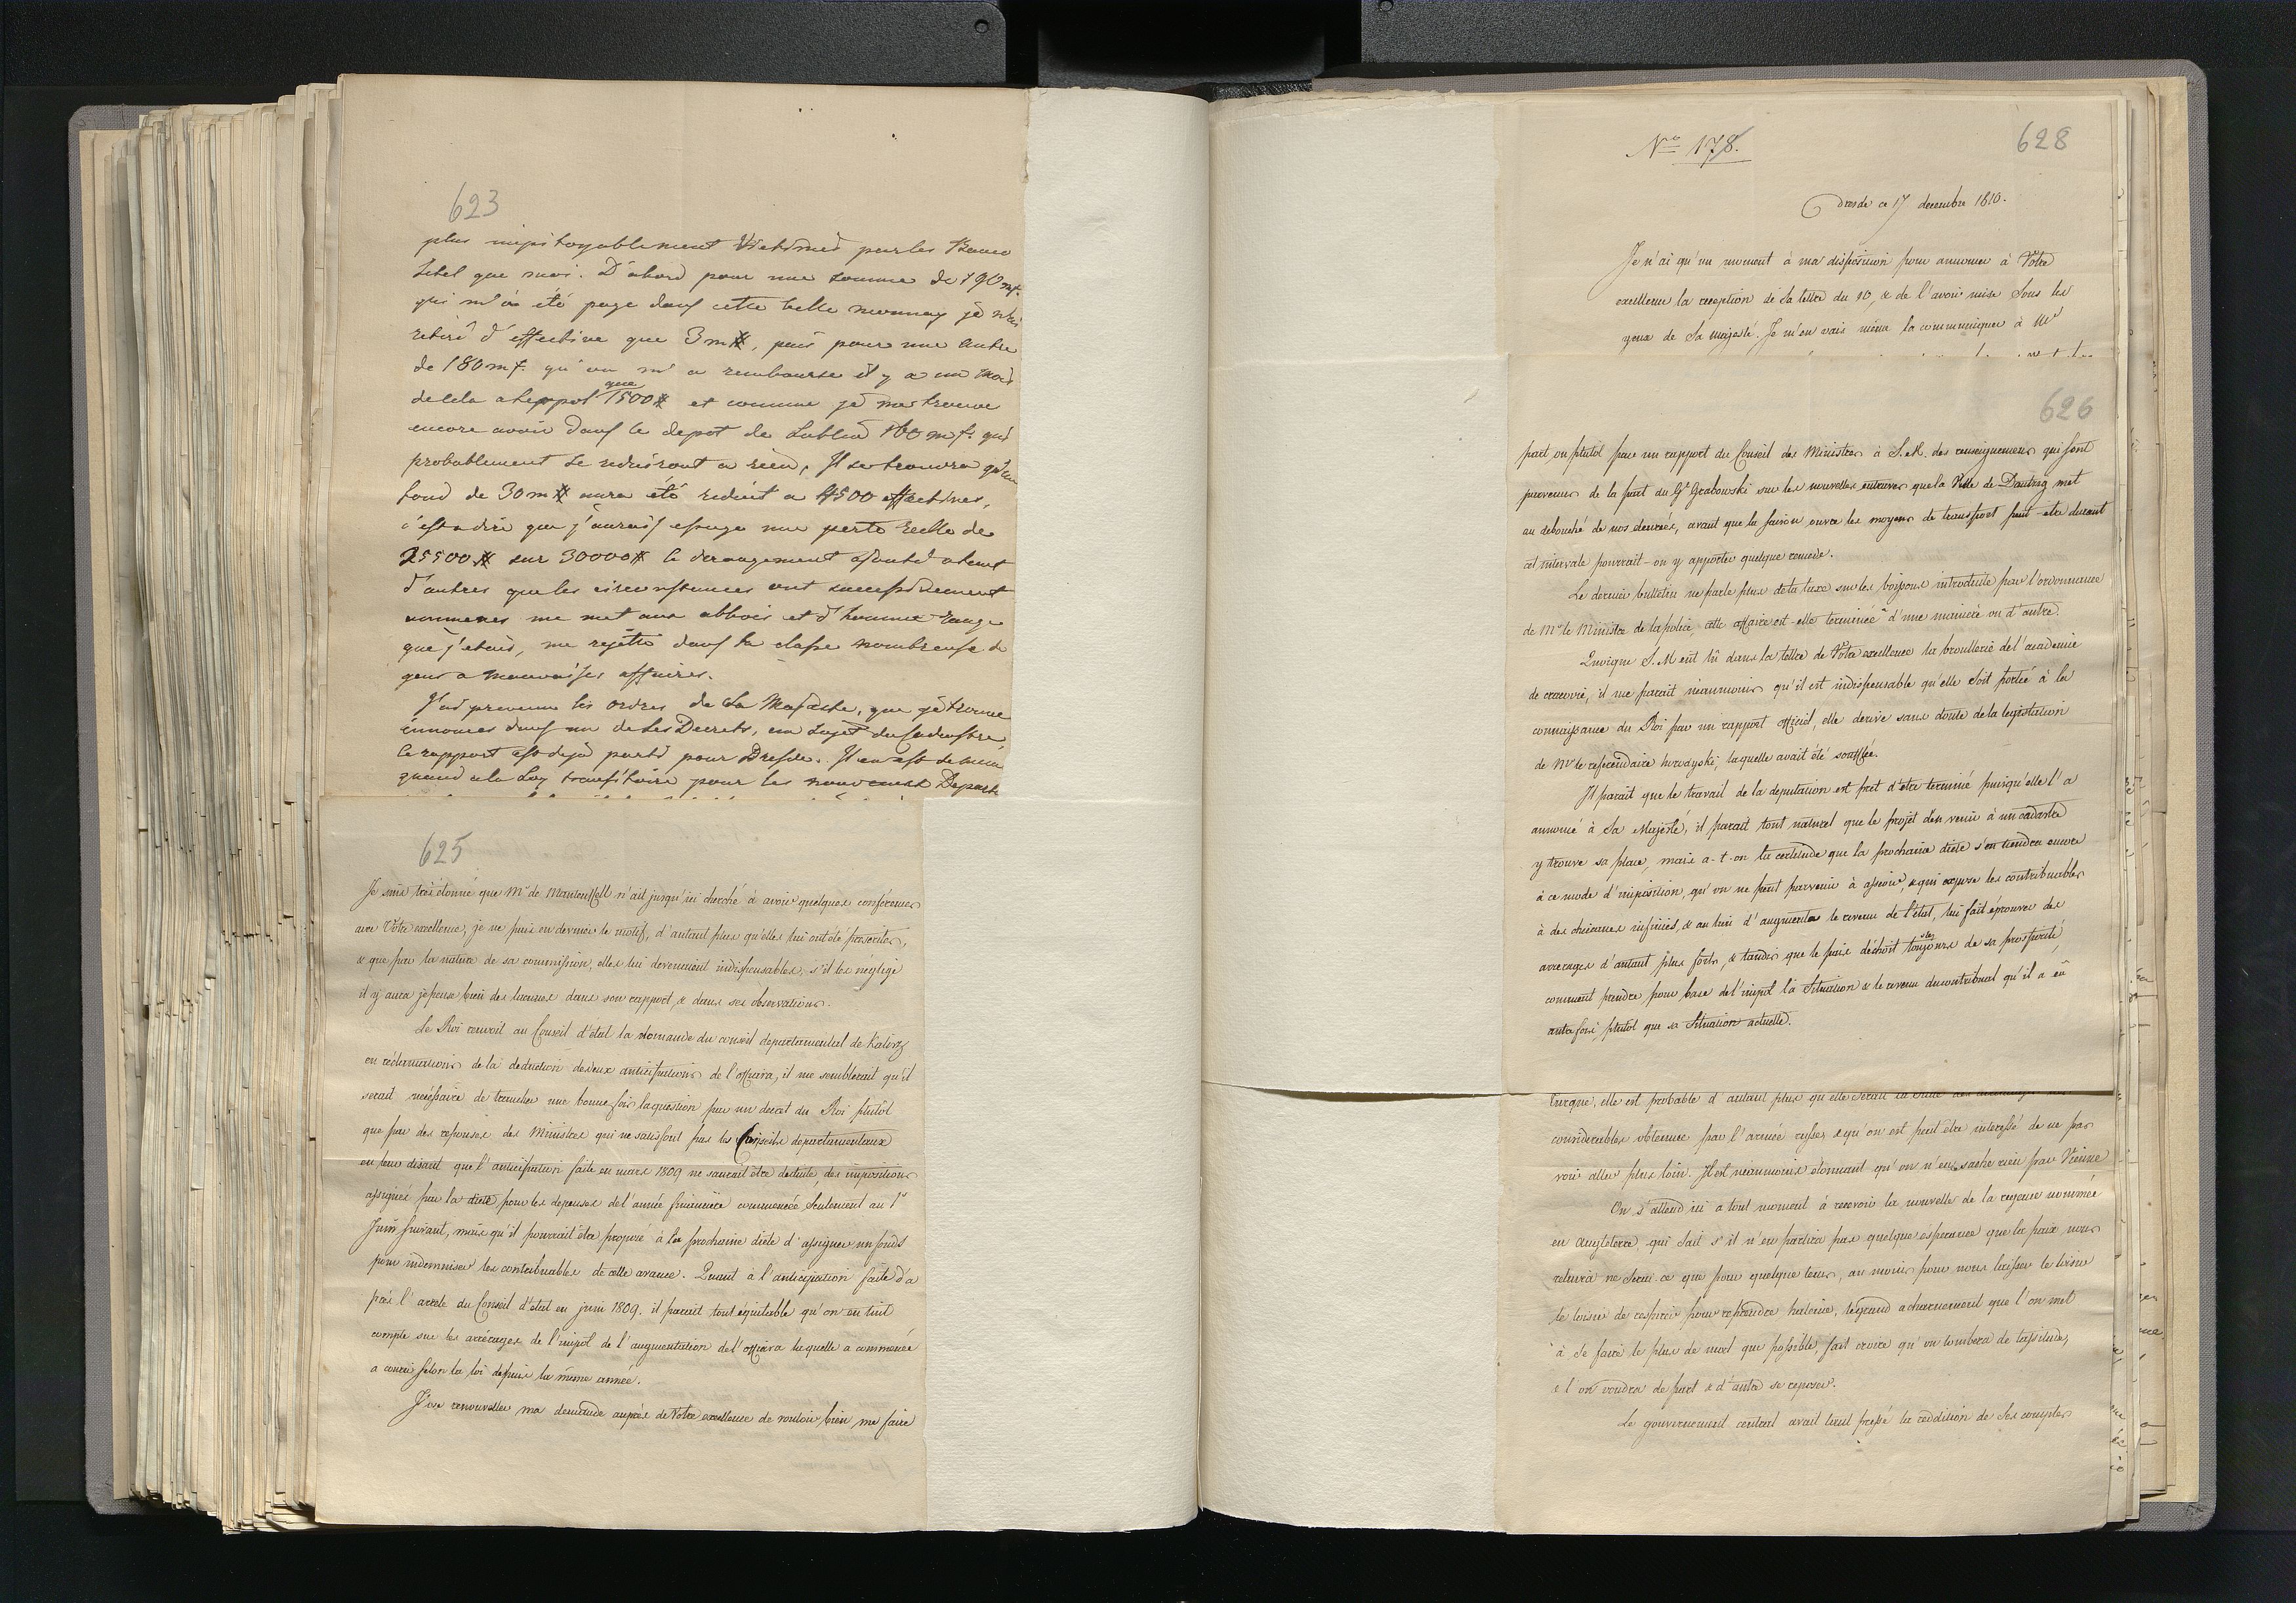 623
plus impitoyablement victimé par les Banco
Zetel que moi. D'abord pour une somme de 190 mf.
qui m'a été payé dans cette belle monnay je n'ai
retiré d'effective que 3 m#, puis pour une autre
de 180 mf. qu'on m'a remboursé il y a un mois
de cela a lieppot que 1500# et comme je me trouve
encore avoir dans le depot de Lublin 160 mf. qui
probablement se reduiront a rien, Il se trouvera qu'un
fond de 30 m# aura été reduit a 4500 effectives,
c'est a dire que j'aurais essuyé une perte reelle de
25500# sur 30000# le derangement ajouté a tant
d'autres que les circonstances ont successivement
amenées me met aux abbois et d'homme rangé
que j'etois, me rejette dans la classe nombreuse de
gens a mauvaises affaires.
J'ai prevenu les ordres de Sa Majesté, que je trouve
enoncés dans un de ses Decrets, au sujet du Cadastre,
le rapport est deja parti pour Dresde. Il en est de meme
quand a la Loy transitoire pour les nouveaux Departe
625
Je suis très étonné que Mr de Manteuffell n'ait jusqu'ici cherché à avoir quelques conférences
avec Votre excellence, je ne puis en deviner le motif, d'autant plus qu'elles lui ont été prescrites,
& que par la nature de sa commission, elles lui devenaient indispensables, s'il les néglige
il y aura je pense bien des lacunes dans son rapport, & dans ses observations.
Le Roi renvoit au Conseil d'état la demande du conseil departamental de Kalisz
en réclamations de la deduction des deux anticipations de l'offiara, il me semblerait qu'il
serait nécessaire de trancher une bonne fois la question par un decret du Roi plutôt
que par des reponses des Ministres qui ne satisfont pas les Conseils departamentaux
en leur disant que l'anticipation faite en mars 1809 ne saurait être deduite, des impositions
assignées par la diete pour les depenses de l'année financiere commencée seulement au 1r
Juin suivant, mais qu'il pourrait être proposé à la prochaine diete d'assigner un fonds
pour indemniser les contribuables de cette avance. Quant à l'anticipation faite d'a
près l'arrêté du Conseil d'état en juin 1809. il parait tout équitable qu'on en tint
compte sur les arrérages de l'impôt de l'augmentation de l'offiara laquelle a commencé
a courir selon la loi depuis la même année.
J'ose renouveller ma demande auprès de Votre excellence de vouloir bien me faire
Nro 178.
628
Dresde ce 17 decembre 1810.
Je n'ai qu'un moment à ma disposition pour annoncer à Votre
excellence la reception de sa lettre du 10, & de l'avoir mise sous les
yeux de Sa majesté. Je m'en vais même la communiquer à Mr
626
part ou plutôt par un rapport du Conseil des Ministres à S.M. des renseignemens qui sont
parvenus de la part du Gl Grabowski sur les nouvelles entraves que la Ville de Dantzig met
au debouché de nos denrées, avant que la saison ouvre les moyens de transport peut-etre durant
cet intervale pourrait-on y apporter quelque remede.
Le dernier bulletin ne parle plus de la taxe sur les boissons introduite par l'ordonnance
de Mr le Ministre de la police, cette affaire est-elle terminée d'une maniere ou d'autre.
Quoique S.M ait lû dans la lettre de Votre excellence la brouillerie de l'academie
de cracovie, il me parait néanmoins qu'il est indispensable qu'elle soit portée à la
connaissance du Roi par un rapport officiel, elle derive sans doute de la legislation
de Mr le referendaire horodyski, laquelle avait été soufflée.
Il parait que le travail de la deputation est pret d'etre terminé puisqu'elle l'a
annoncé à Sa Majesté, il parait tout naturel que le projet d'en venir à un cadastre
y trouve sa place, mais a-t-on la certitude que la prochaine diete s'en tiendra encore
à ce mode d'imposition, qu'on ne peut parvenir à asseoir, & qui expose les contribuables
à des chicanes infinies, & au lieu d'augmenter le revenu de l'état, lui fait éprouver des
arrerages d'autant plus forts, & tandis que le pais déchoit toujours de sa prosperité,
comment prendre pour base de l'impot la situation & le revenu du contribual qu'il a eû
autrefois plutôt que sa situation actuelle.
Turque, elle est probable d'autant plus qu'elle serait la suite des avantages
considerables obtenus par l'armée russe, & qu'on est peut être interessé de ne pas
voir aller plus loin. Il est néanmoins étonnant qu'on n'en sache rien par Vienne
On s'attend ici a tout moment à recevoir la nouvelle de la regence nommée
en Angleterre qui sait s'il n'en partira pas quelque esperance que la paix nous
reluira ne serai-ce que pour quelque tems, au moins pour nous laisser le loisir
le loisir de respirer pour reprendre haleine, le grand acharnement que l'on met
à se faire le plus de mal que possible, fait croire qu'on tombera de lassitude,
& l'on voudra de part & d'autre se reposer.
Le gouvernement central avait tant pressé la reddition de ses comptes